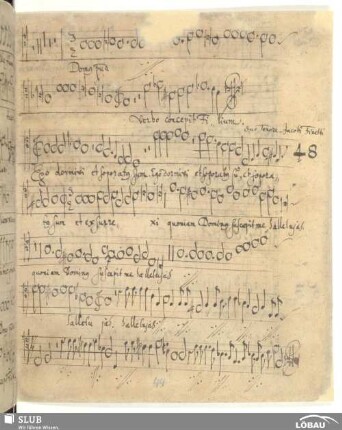 Domine
Verbo concepit Filium.
48
Ego dormivi et soporatus sum Ego dormivi et soporatus sū, et sopora
tus sum et exsurre xi quoniam Dominꝰ suscepit me hallelujah
quoniam Dominꝰ suscepit me hallelujah
hallelu jah, hallelujah
SLUB
Wir führen Wissen.
LÖBAU